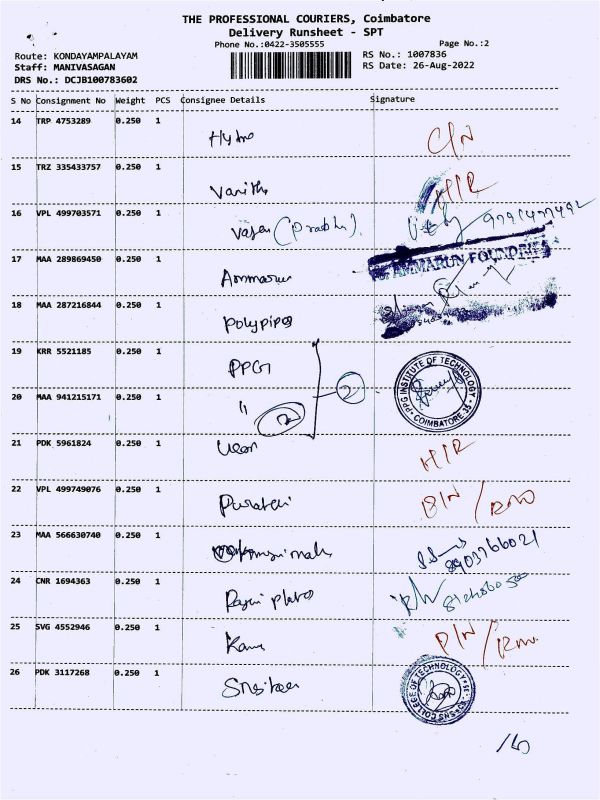 THE PROFESSIONAL COURIERS, Coimbatore
Delivery Runsheet - SPT
Phone No.:0422-3505555
Page No.:2
Route: KONDAYAMPALAYAM
RS No.: 1007836
Staff: MANIVASAGAN
RS Date: 26-Aug-2022
DRS No.: DCJB100783602
S No Consignment No Weight PCS Consignee Details Signature
14 TRP 4753289 0.250 1 Hydro C/N
15 TRZ 335433757 0.250 1 Vanitha H/R
16 VPL 499703571 0.250 1 (Prabhu)
17 MAA 289869450 0.250 1 Ammarun AMMARUN FOUNDRIES
18 MAA 287216844 0.250 1 Polypipes
19 KRR 5521185 0.250 1 PPG 2
PPG INSTITUTE OF TECHNOLOGY COIMBATORE 35
20 MAA 941215171 0.250 1 "
21 PDK 5961824 0.250 1 H/R
22 VPL 499749076 0.250 1
23 MAA 566630740 0.250 1 8903766021
24 CNR 1694363 0.250 1
25 SVG 4552946 0.250 1 D/N
26 PDK 3117268 0.250 1
SNS COLLEGE OF TECHNOLOGY